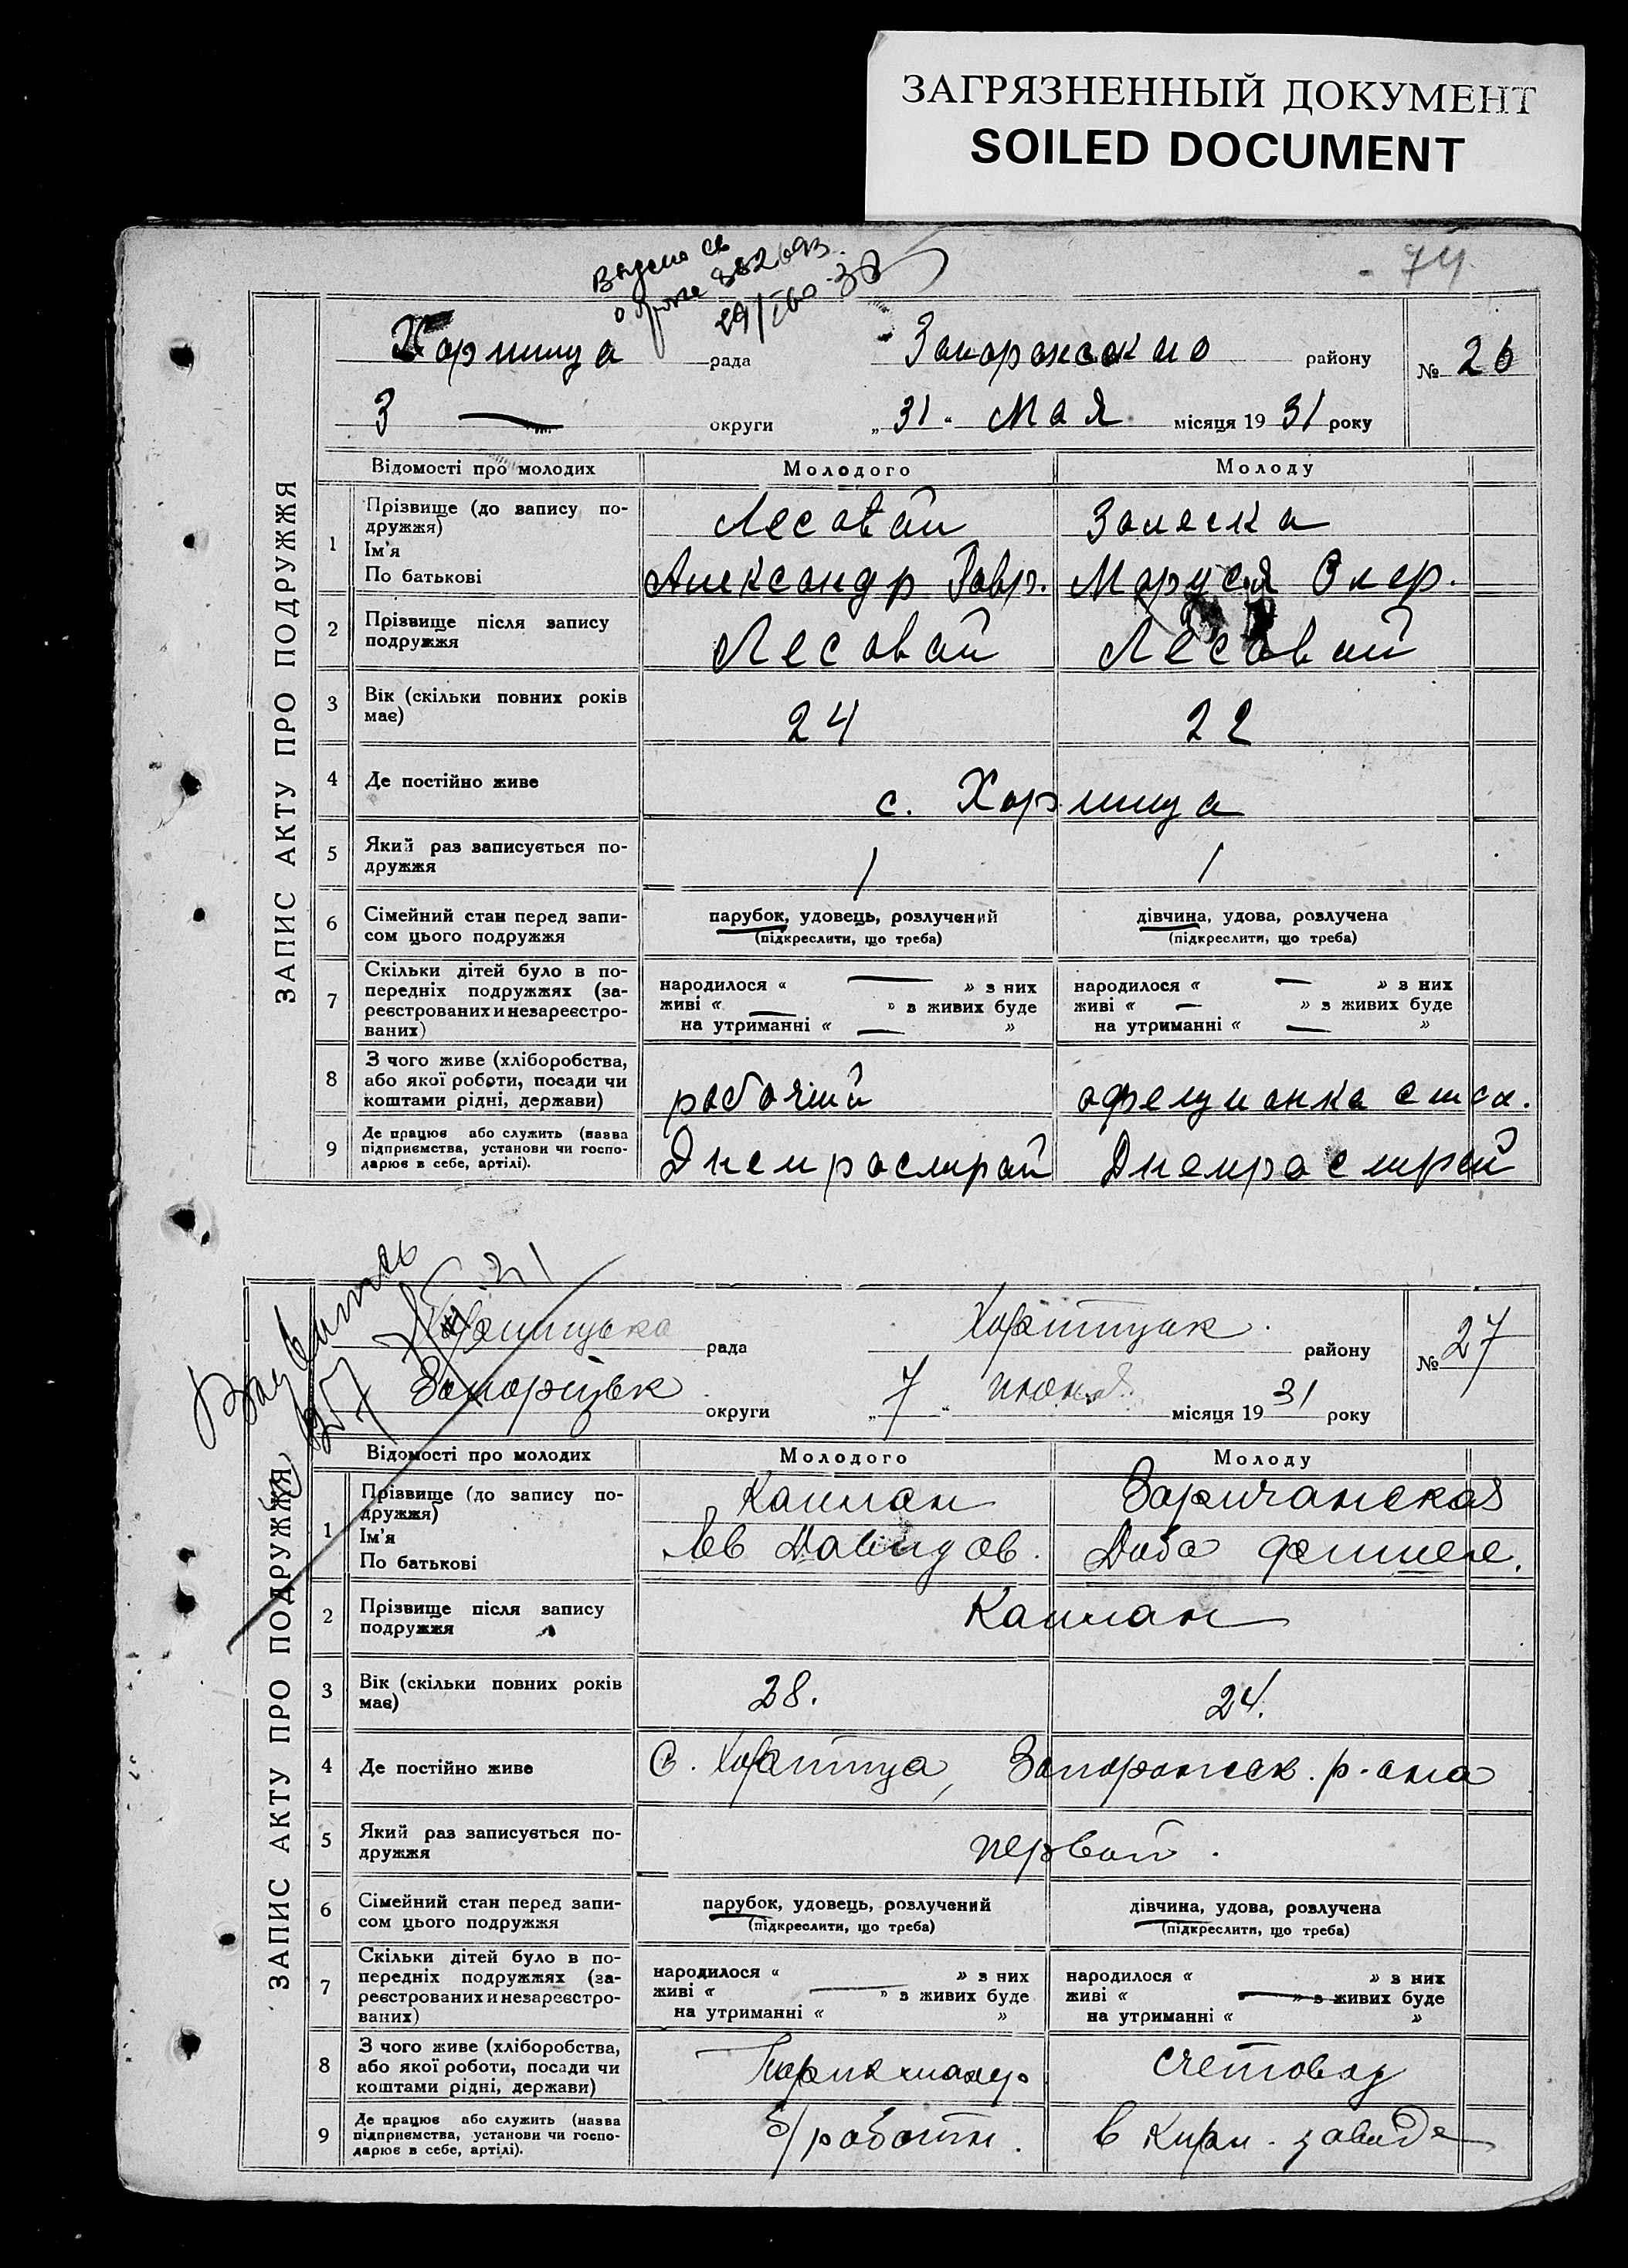 ЗАГРЯЗНЕННЫЙ ДОКУМЕНТ
SOILED DOCUMENT
74
29/
Хортица рада Запорожского району № 26
З — округи „31“ Мая місяця 1931 року
ЗАПИС АКТУ ПРО ПОДРУЖЖЯ
Відомості про молодих Молодого Молоду
1 Прізвище (до запису по-
дружжя) Лесовый Залеска
Ім'я
По батькові Александр Гавр. Маруся
2 Прізвище після запису
подружжя Лесовый Лесовый
3 Вік (скільки повних років
має) 24 22
4 Де постійно живе с. Хортица
5 Який раз записується по-
дружжя 1 1
6 Сімейний стан перед запи-
сом цього подружжя парубок, удовець, розлучений дівчина, удова, розлучена
(підкреслити, що треба) (підкреслити, що треба)
7 Скільки дітей було в по-
передніх подружжях (за-
реєстрованих и незареєстро-
ваних)
народилося « — » з них народилося « — » з них
живі « — » з живих буде живі « — » з живих буде
на утриманні « — » на утриманні « — »
8 З чого живе (хліборобства,
або якої роботи, посади чи
коштами рідні, держави) рабочий офецианка
9 Де працює або служить (назва
підприємства, установи чи госпо-
дарює в себе, артілі). Днепрострой Днепрострой
Хортицька рада Хортицьк. району № 27
Запоріцьк округи „7“ июня місяця 1931 року
ЗАПИС АКТУ ПРО ПОДРУЖЖЯ
Відомості про молодих Молодого Молоду
1 Прізвище (до запису по-
дружжя) Каплан Заричанская
Ім'я
По батькові Лев Давидов. Доба
2 Прізвище після запису
подружжя Каплан
3 Вік (скільки повних років
має) 28. 24.
4 Де постійно живе С. Хортица, Запорожск. р-она
5 Який раз записується по-
дружжя первый.
6 Сімейний стан перед запи-
сом цього подружжя парубок, удовець, розлучений дівчина, удова, розлучена
(підкреслити, що треба) (підкреслити, що треба)
7 Скільки дітей було в по-
передніх подружжях (за-
реєстрованих и незареєстро-
ваних)
народилося « » з них народилося « » з них
живі « — » з живих буде живі « — » з живих буде
на утриманні « » на утриманні « »
8 З чого живе (хліборобства,
або якої роботи, посади чи
коштами рідні, держави) Парикмахер счетовод
9 Де працює або служить (назва
підприємства, установи чи госпо-
дарює в себе, артілі). б/работы. в Кирп. заводе